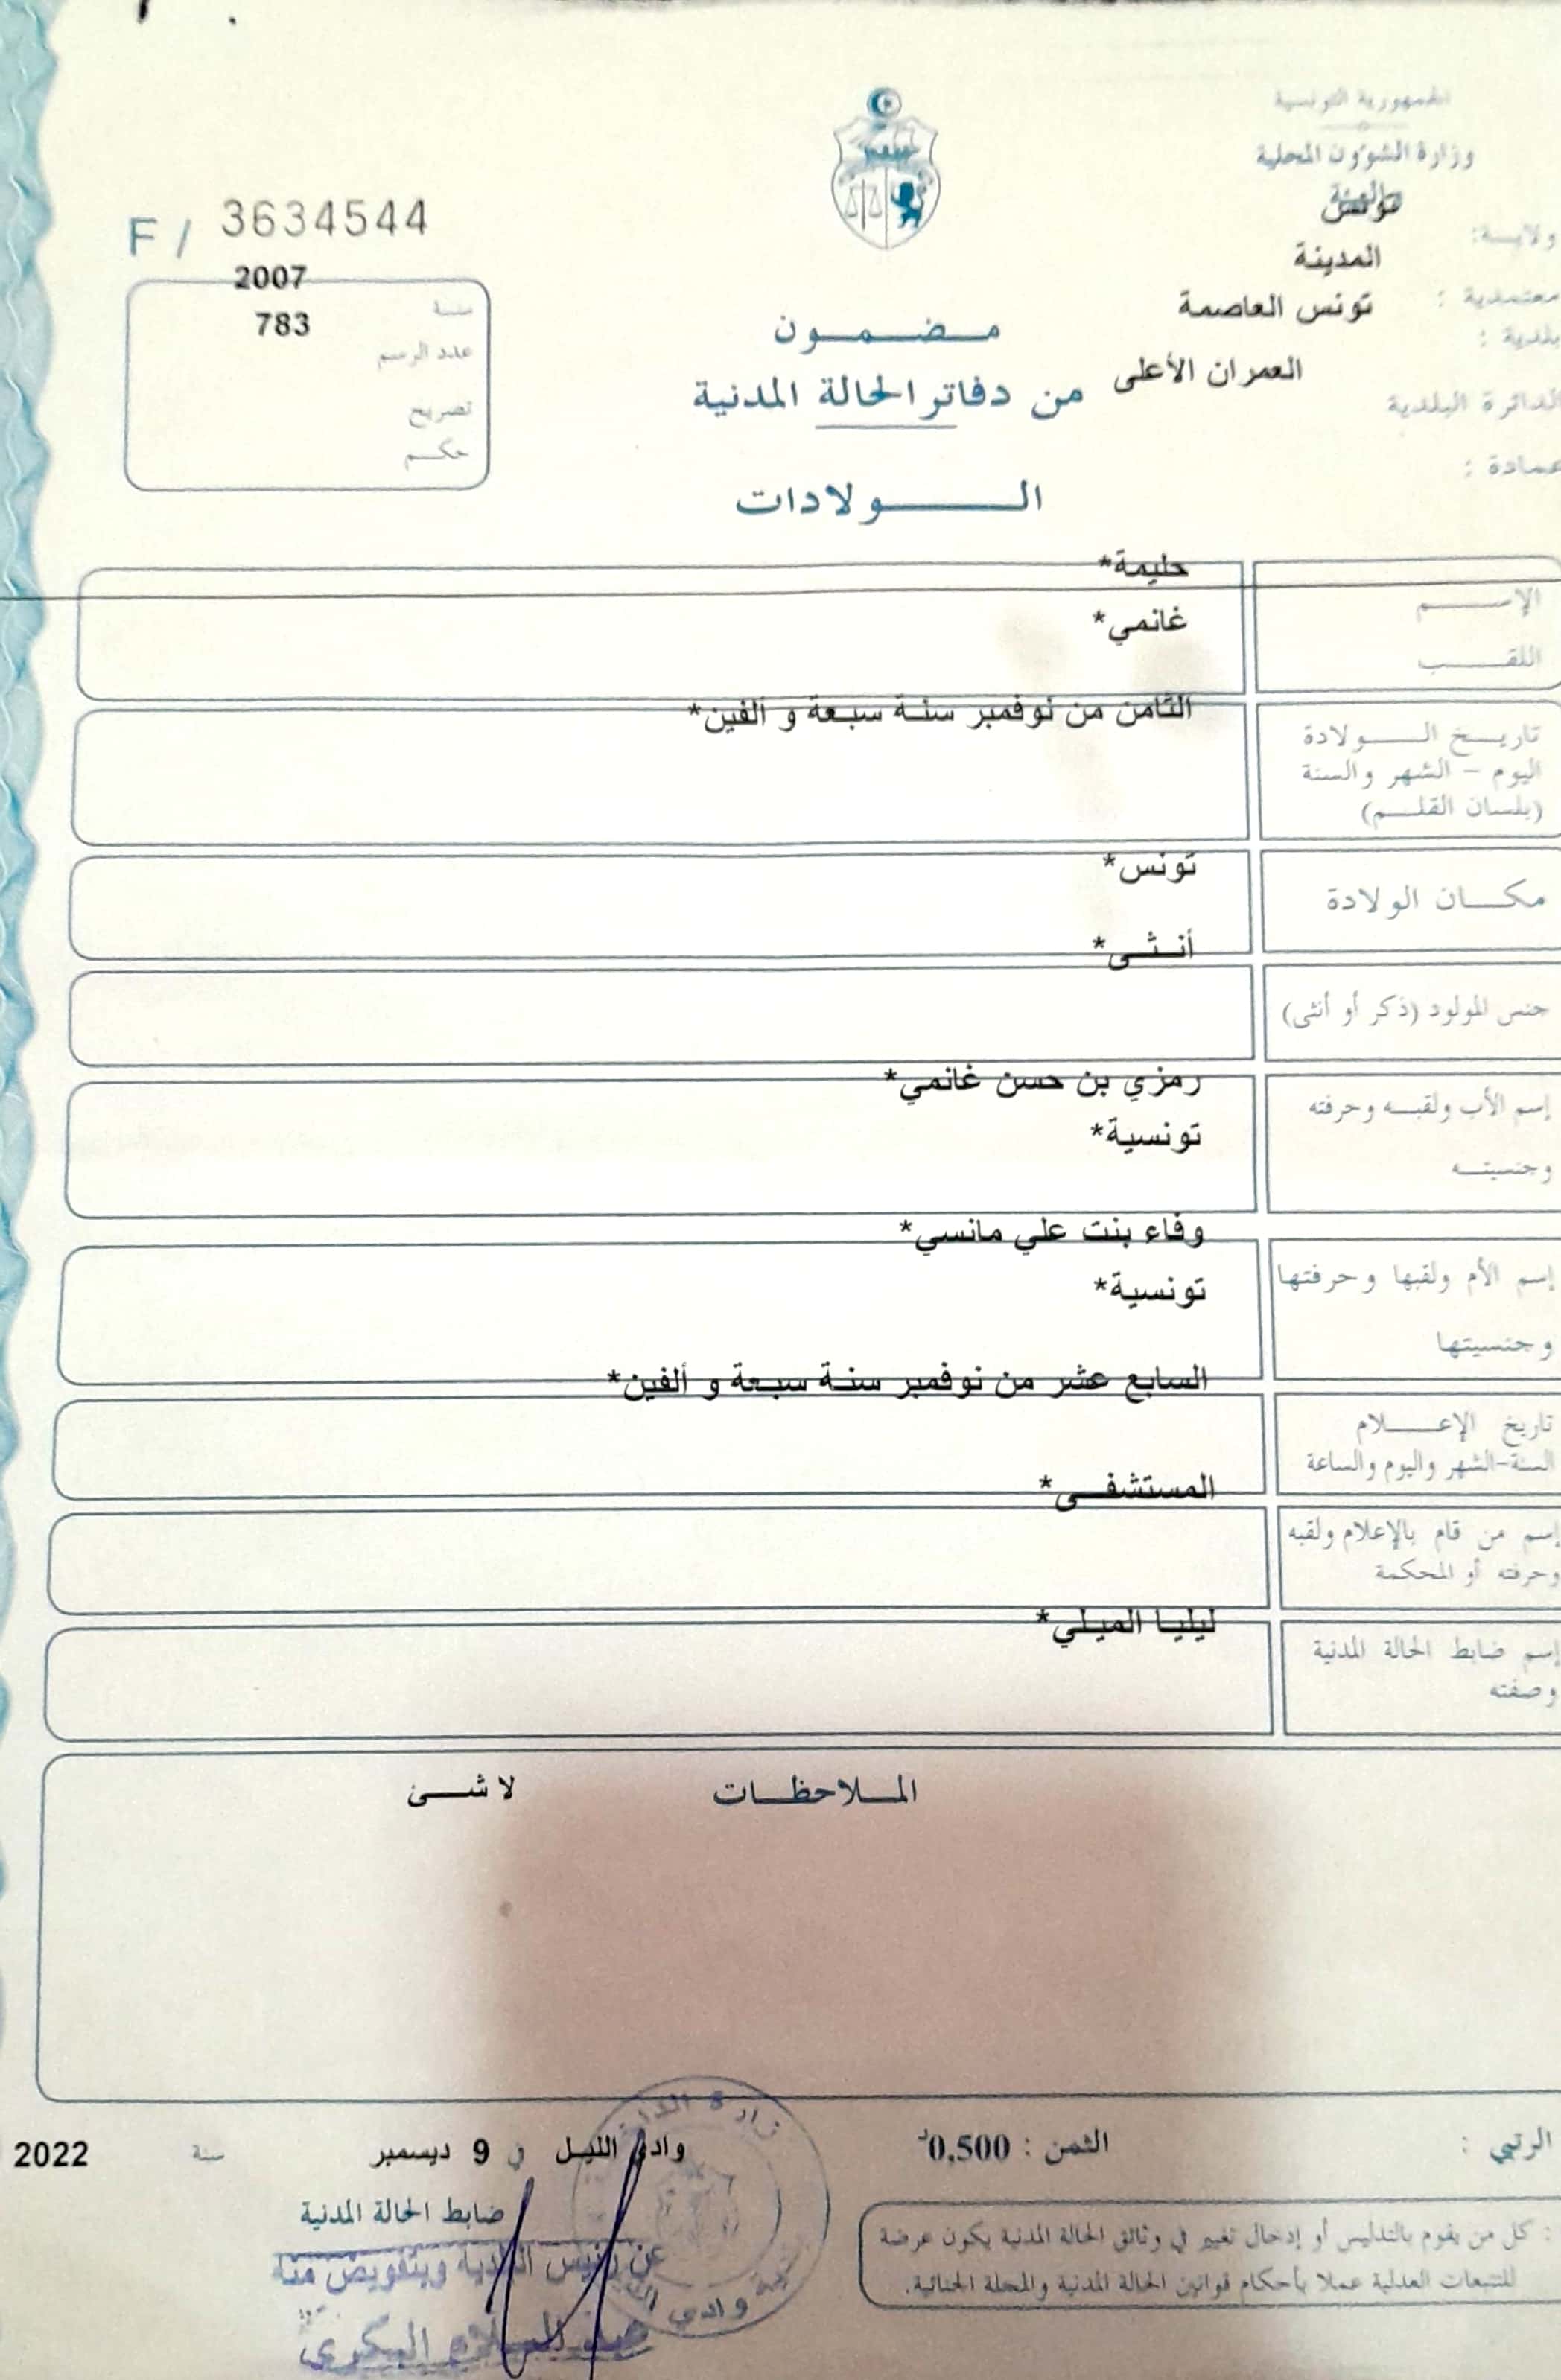 الجمهورية التونسية
وزارة الشؤون المحلية
والبيئة
ولاية: تونس
معتمدية : المدينة
بلدية : تونس العاصمة
الدائرة البلدية العمران الأعلى
عمادة :
F / 3634544
سنة 2007
عدد الرسم 783
تصريح
حكم
مضمون
من دفاتر الحالة المدنية
الولادات
الإسم حليمة*
اللقب غانمي*
تاريخ الولادة
اليوم - الشهر والسنة
(بلسان القلم)
الثامن من نوفمبر سنة سبعة و ألفين*
مكان الولادة تونس*
جنس المولود (ذكر أو أنثى) أنثى*
إسم الأب ولقبه وحرفته رمزي بن حسن غانمي*
وجنسيته تونسية*
إسم الأم ولقبها وحرفتها وفاء بنت علي مانسي*
وجنسيتها تونسية*
تاريخ الإعلام
السنة-الشهر واليوم والساعة
السابع عشر من نوفمبر سنة سبعة و ألفين*
إسم من قام بالإعلام ولقبه
وحرفته أو المحكمة
المستشفى*
إسم ضابط الحالة المدنية
وصفته
ليليا الميلي*
الملاحظات لا شئ
الرتبي : الثمن : 0,500د
وادي الليل في 9 ديسمبر سنة 2022
ضابط الحالة المدنية
عن رئيس البلدية وبتفويض منه
البكري
: كل من يقوم بالتدليس أو إدخال تغيير في وثائق الحالة المدنية يكون عرضة
للتتبعات العدلية عملا بأحكام قوانين الحالة المدنية والمجلة الجنائية.
وادي